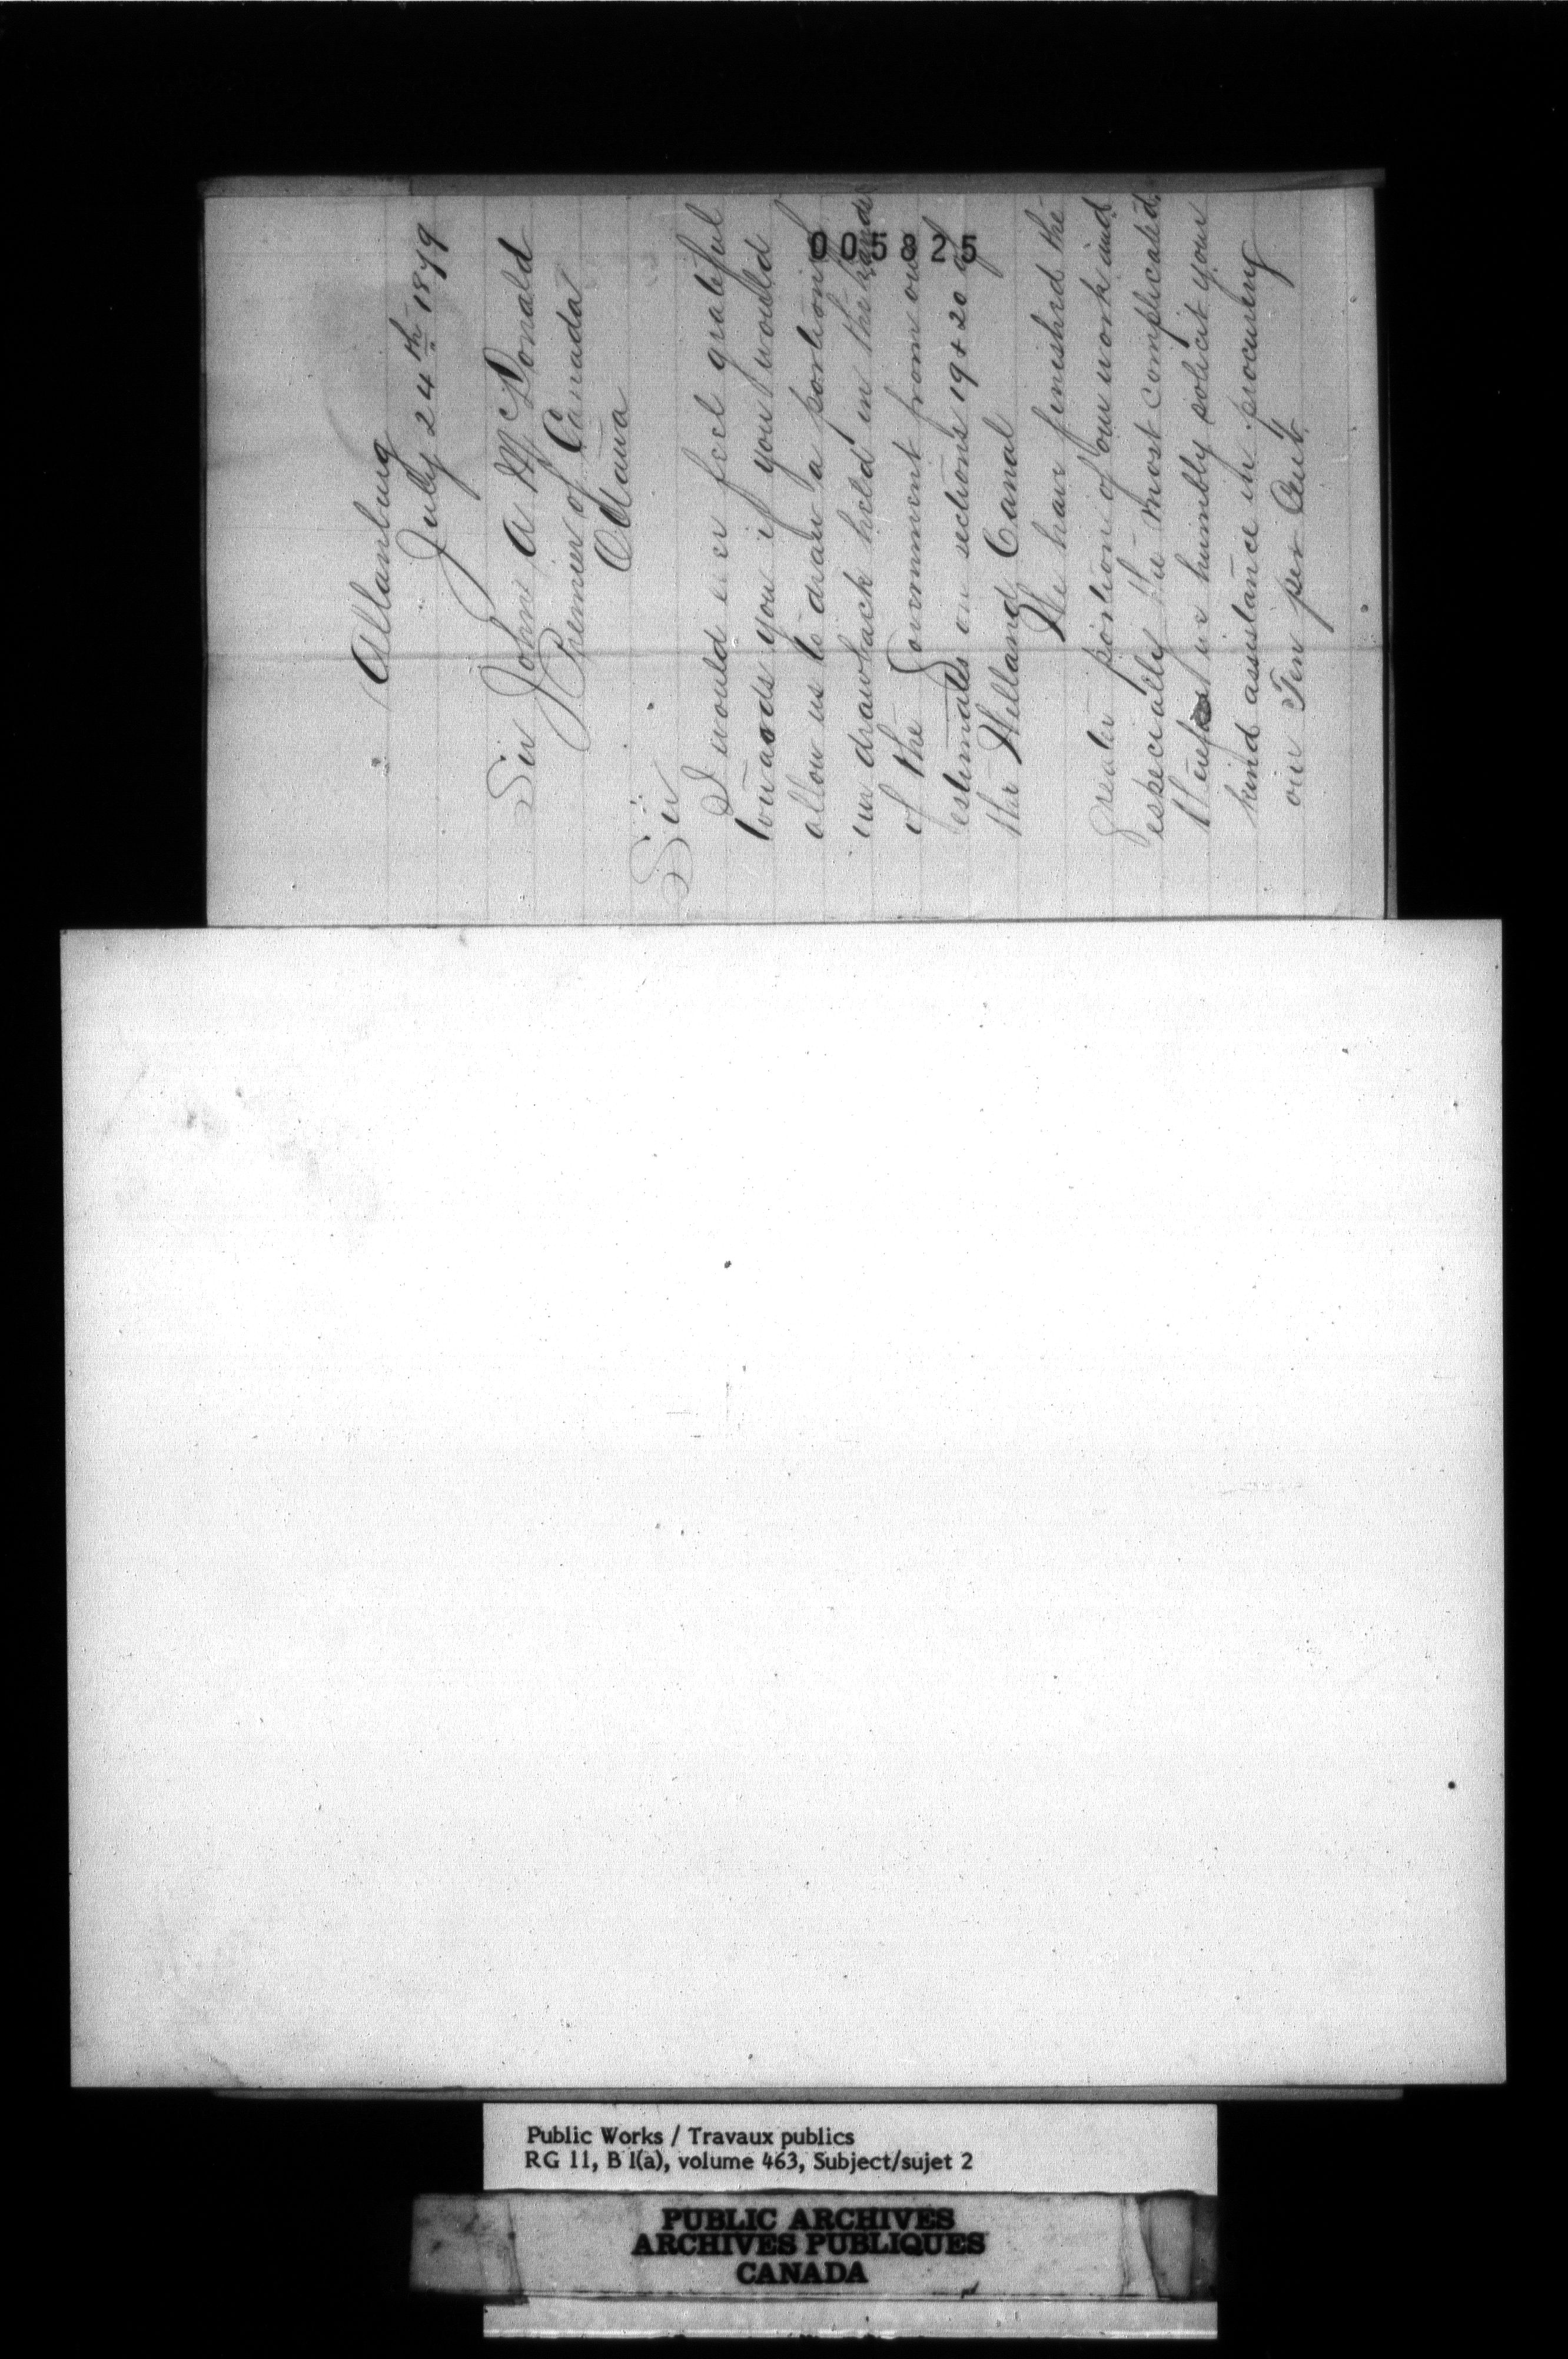 Allanburg
July 24th 1879
Sir John A McDonald
Premier of Canada
Ottawa
Sir
I would ever feel grateful
towards you if you would
allow us to draw a portion of
our drawback held in the hands
of the Government from our
estimates on sections 19 & 20 of
the Welland Canal
We have finished the
greater portion of our work and
especially the most complicated
therefore we humbly solicit your
kind assistance in procuring
our Ten per Cent.
005825
Public Works / Travaux publics
RG 11, B 1(a), volume 463, Subject/sujet 2
PUBLIC ARCHIVES
ARCHIVES PUBLIQUES
CANADA